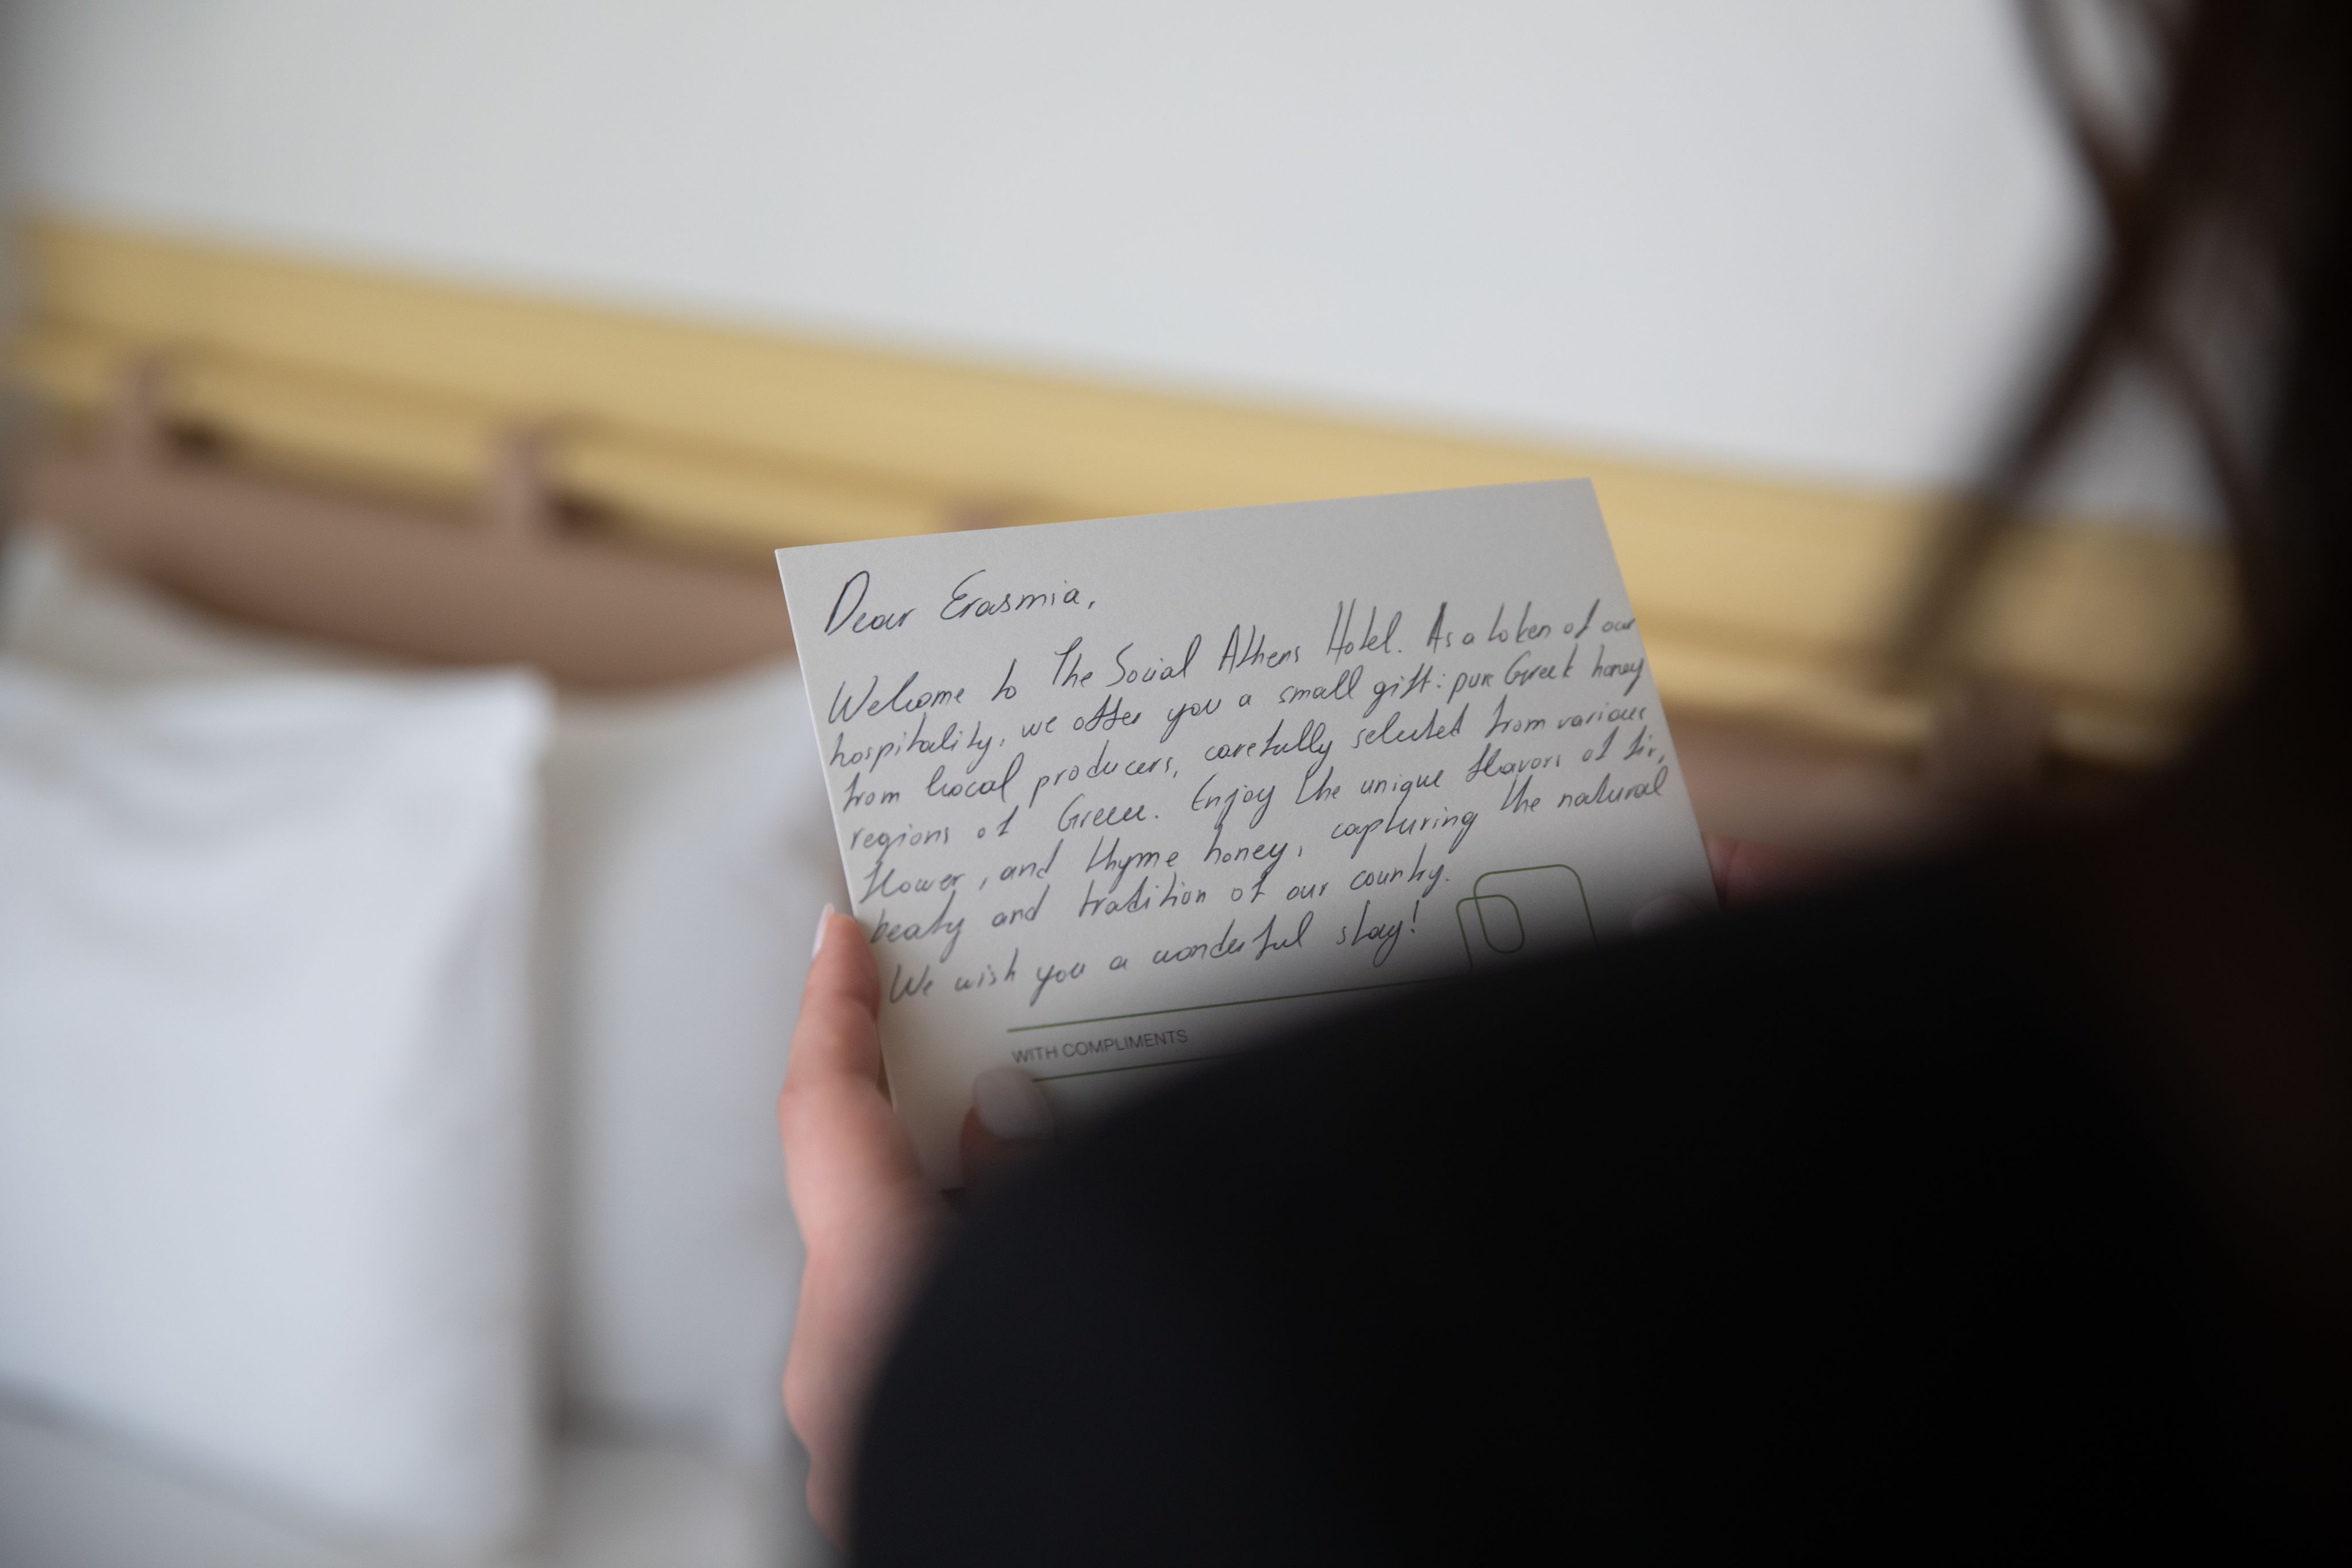 Dear Erasmia,
Welcome to The Social Athens Hotel. As a token of our
hospitality, we offer you a small gift: pure Greek honey
from local producers, carefully selected from various
regions of Greece. Enjoy the unique flavors of fir,
flower, and thyme honey, capturing the natural
beaty and tradition of our country.
We wish you a wonderful stay!
WITH COMPLIMENTS